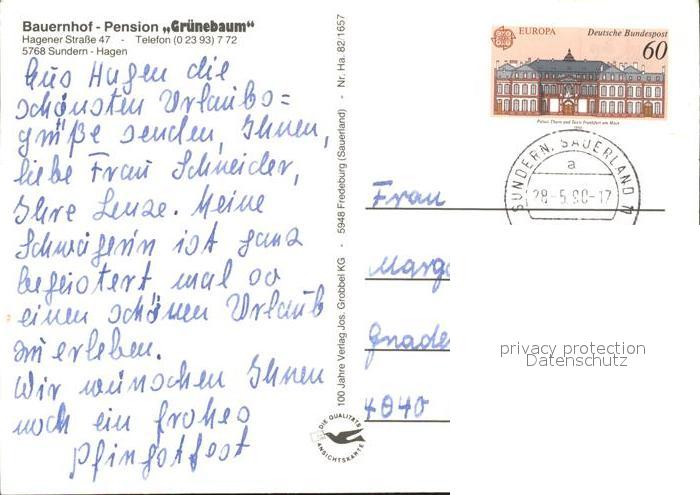 Bauernhof - Pension „Grünebaum“
Hagener Straße 47 - Telefon (0 23 93) 7 72
5768 Sundern - Hagen
Aus Hagen die
schönsten Urlaubs=
grüße senden, Ihnen,
liebe Frau Schneider,
Ihre Lenze. Meine
Schwägerin ist ganz
begeistert mal so
einen schönen Urlaub
zu erleben.
Wir wünschen Ihnen
noch ein frohes
Pfingstfest
100 Jahre Verlag Jos. Grobbel KG - 5948 Fredeburg (Sauerland) - Nr. Ha. 82/1657
DIE QUALITÄTS
ANSICHTSKARTE
EUROPA
Deutsche Bundespost
60
Palais Thurn und Taxis Frankfurt am Main
SUNDERN, SAUERLAND 1
a
28-5.90-17
Frau
Marg
Gnade
4040
privacy protection
Datenschutz